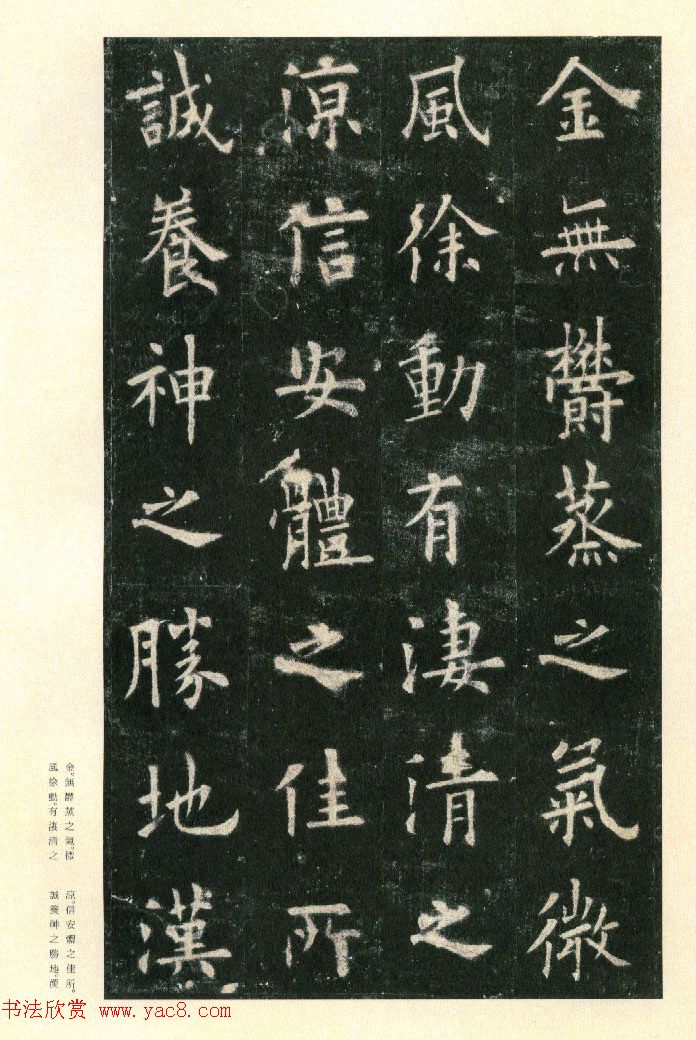 金無欝蒸之氣微
風徐動有淒清之
涼信安體之佳所
誠養神之勝地漢
金。無欝蒸之氣。微
風徐動。有淒清之
涼。信安體之佳所。
誠養神之勝地。漢
书法欣赏 www.yac8.com